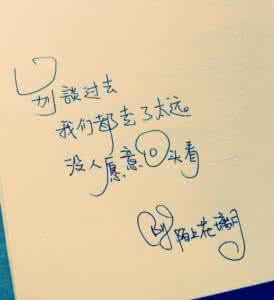 别談过去
我们都走了太远。
没人愿意回头看
By 陌上花满月